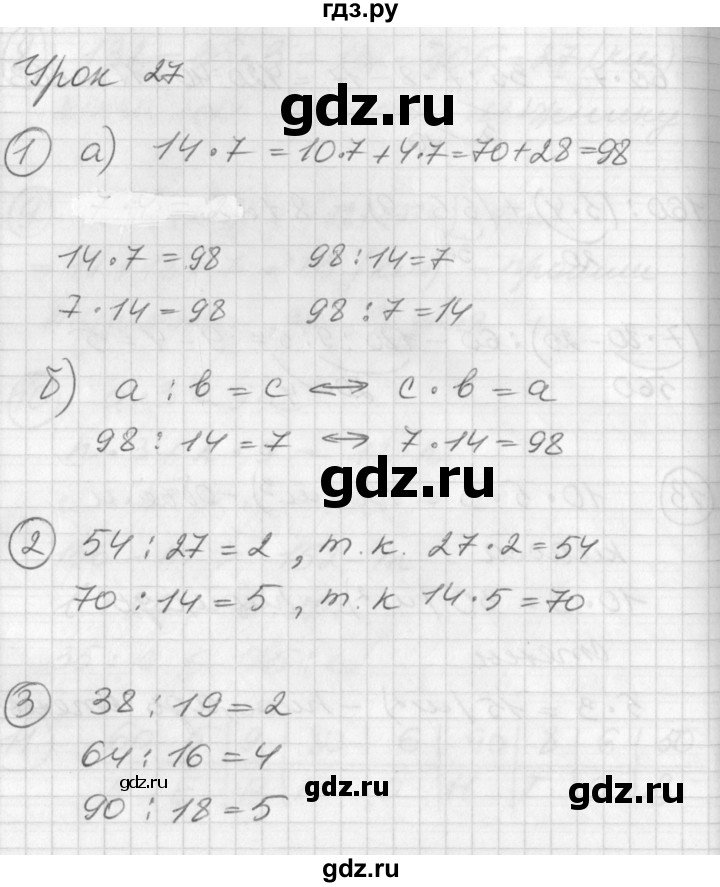 гдз.ру
Урок 27
gdz.ru
1 а) 14·7 = 10·7+4·7=70+28=98
14·7=98 98:14=7
7·14=98 98:7=14
б) а:в=с ⟷ с·в=а
98:14=7 ⟷ 7·14=98
gdz.ru
2 54:27=2, т.к. 27·2=54
70:14=5, т.к 14·5=70
3 38:19=2
64:16=4
gdz.ru gdz.ru gdz.ru
90:18=5
gdz.ru